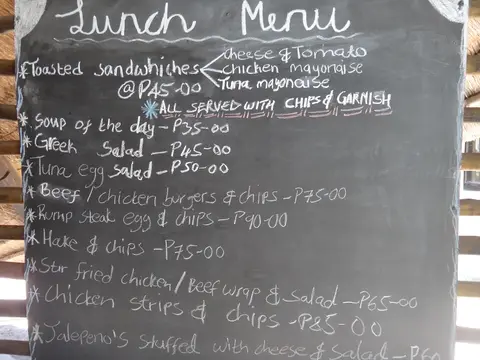 Lunch Menu
*Toasted sandwhiches
cheese & Tomato
chicken mayonaise
Tuna mayonaise
@P45-00
*ALL SERVED WITH CHIPS & GARNISH
*Soup of the day - P35-00
*Greek Salad - P45-00
*Tuna egg salad - P50-00
*Beef / chicken burgers & chips - P75-00
*Rump steak egg & chips - P90-00
*Hake & chips - P75-00
*Stir fried chicken / Beef wrap & salad - P65-00
*Chicken strips & chips - P85-00
*Jalepeno's stuffed with cheese & salad -